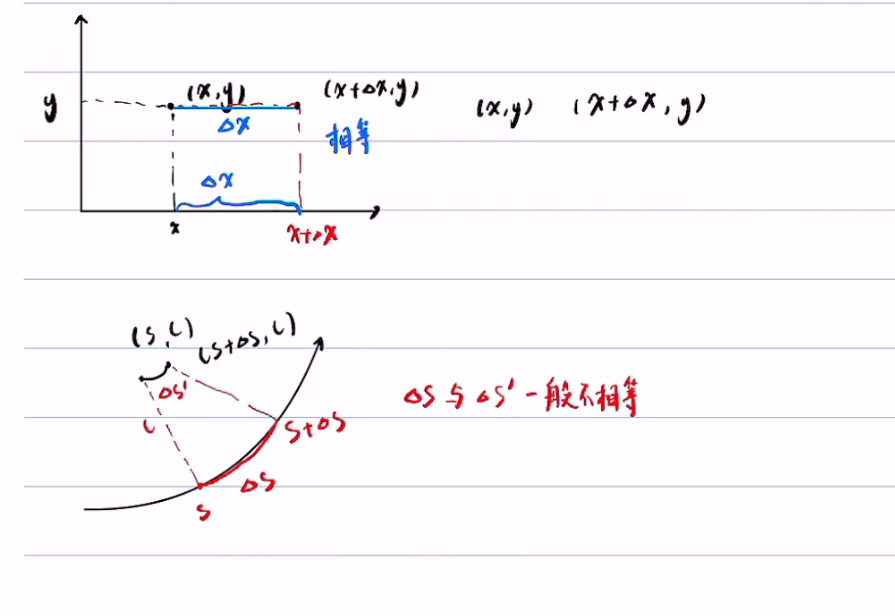 (x,y)
(x+Δx,y)
y
Δx
相等
(x,y) (x+Δx,y)
Δx
x
x+Δx
(s,l)
(s+Δs,l)
Δs'
l
s+Δs
Δs
s
Δs与Δs'一般不相等